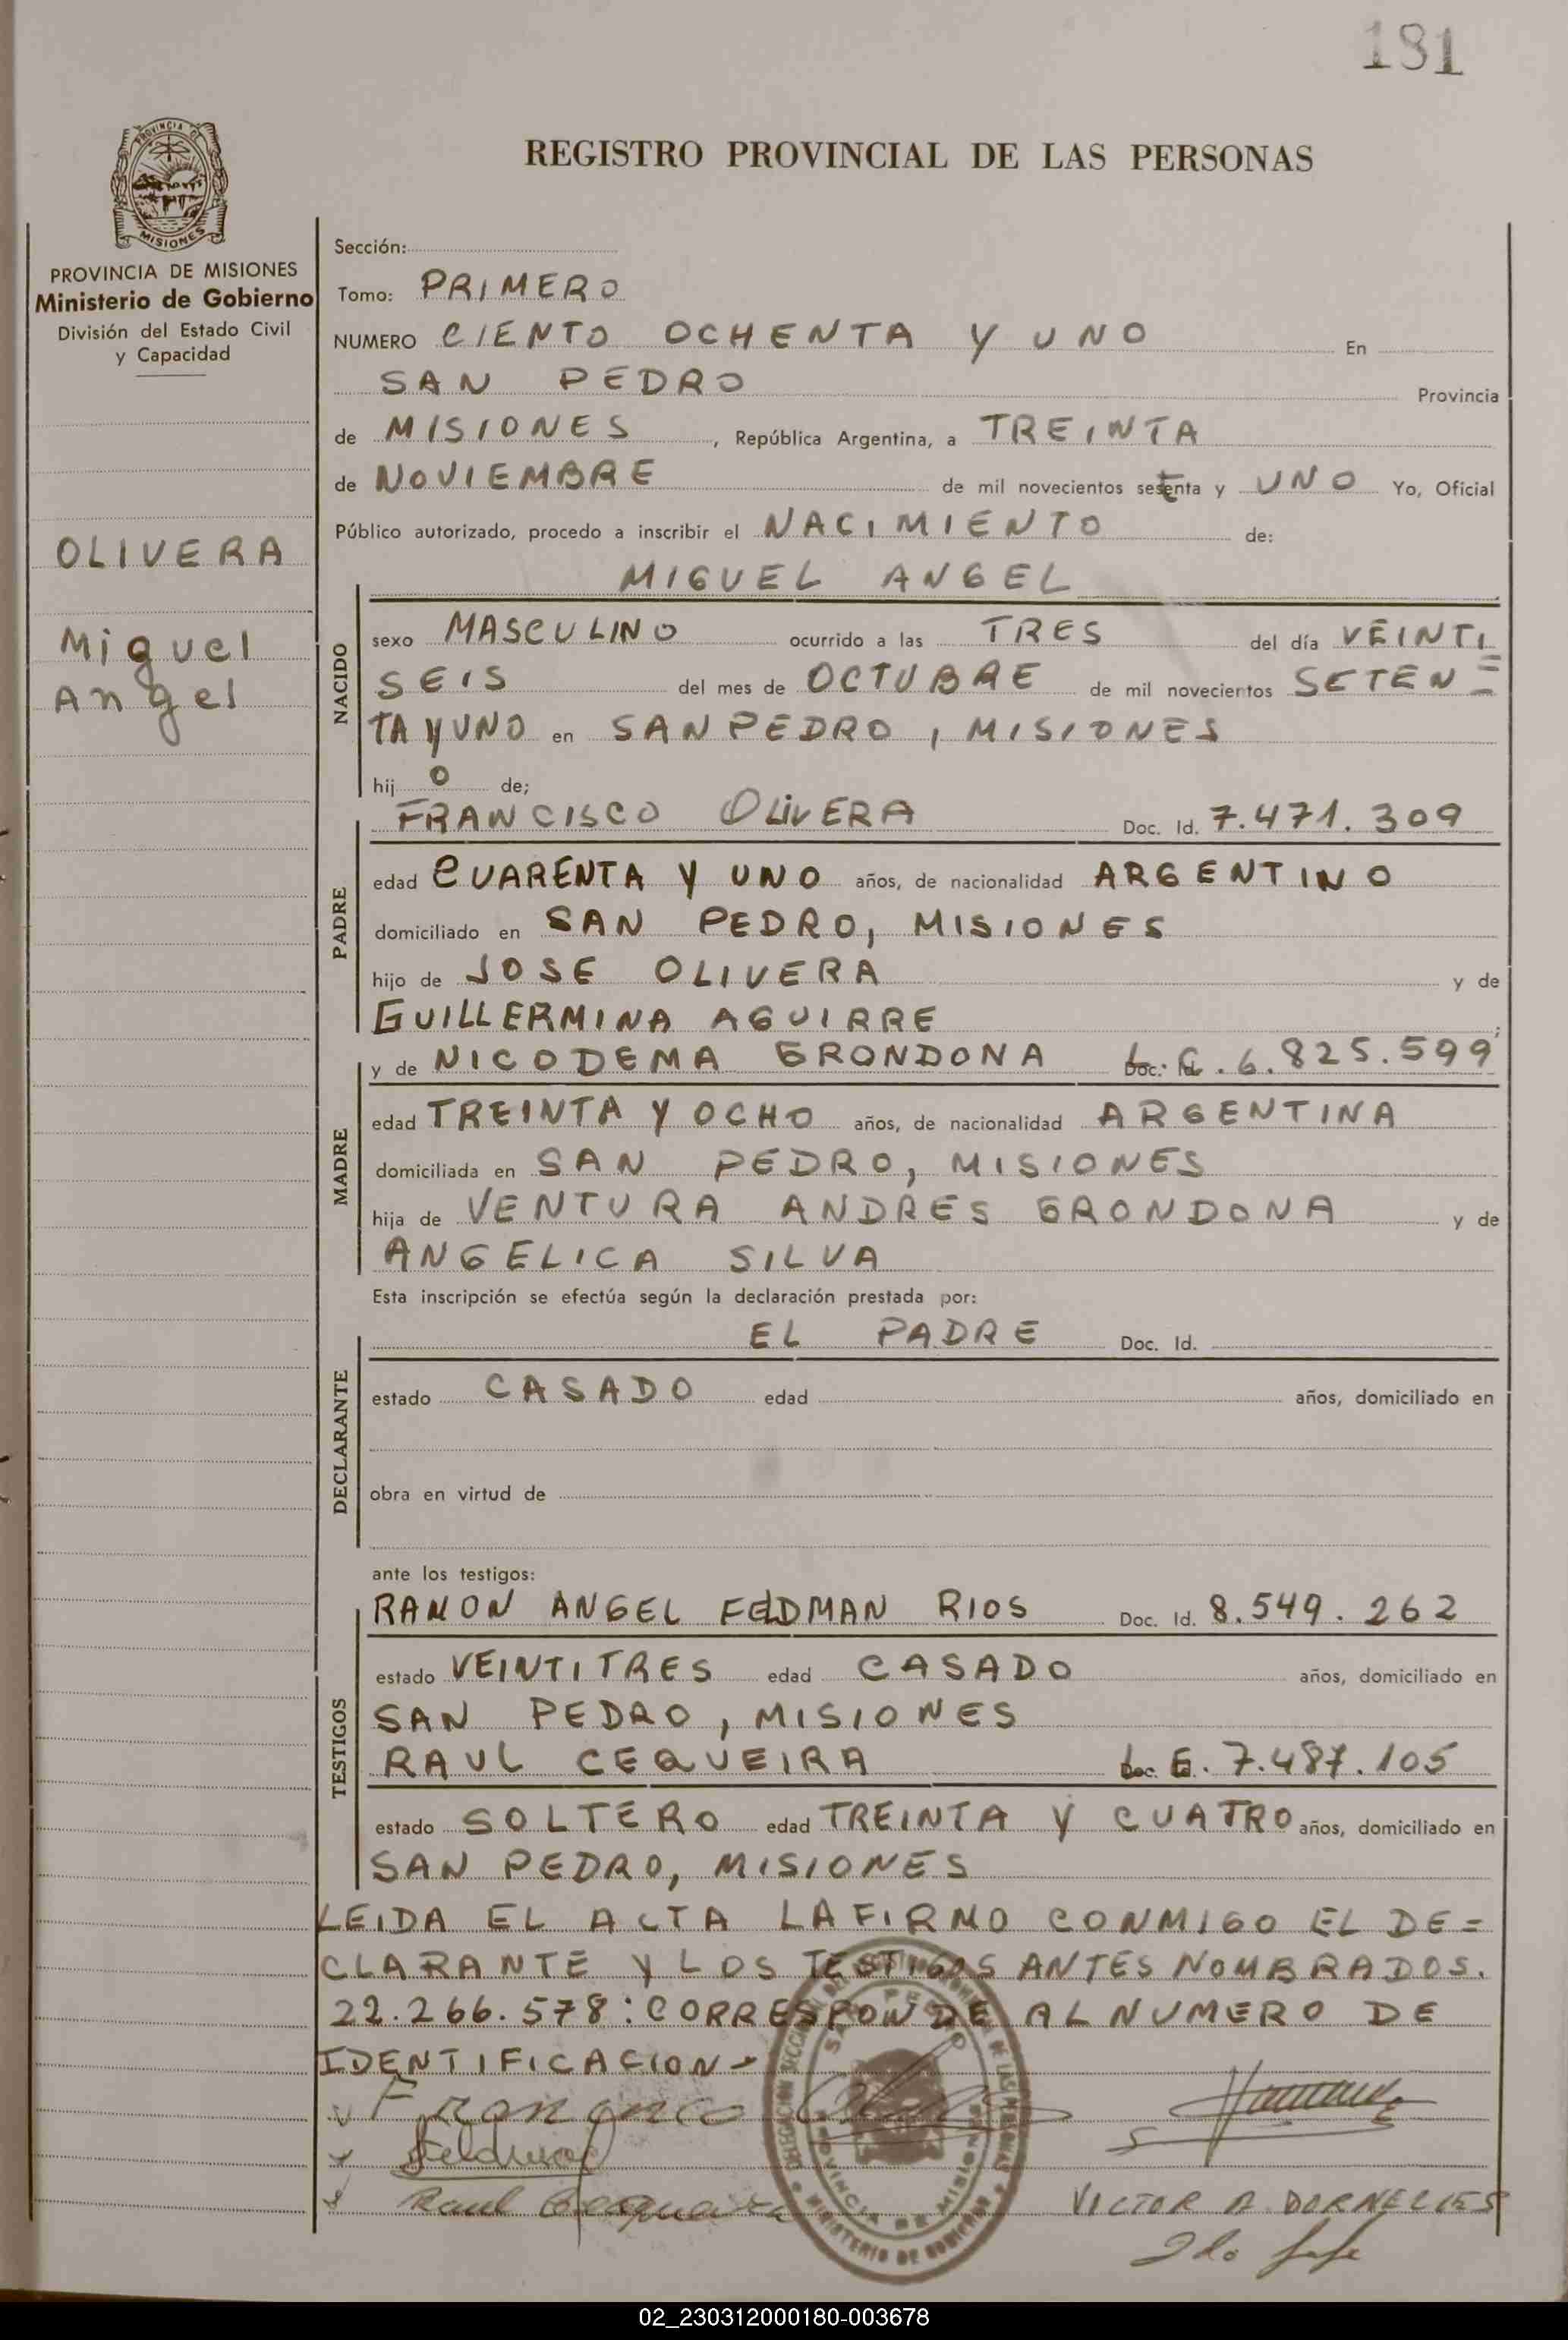 181
PROVINCIA DE
MISIONES
REGISTRO PROVINCIAL DE LAS PERSONAS
PROVINCIA DE MISIONES
Ministerio de Gobierno
División del Estado Civil
y Capacidad
OLIVERA
Miguel
Angel
Sección:
Tomo: PRIMERO
NUMERO CIENTO OCHENTA Y UNO En
SAN PEDRO Provincia
de MISIONES, República Argentina, a TREINTA
de NOVIEMBRE de mil novecientos setenta y UNO Yo, Oficial
Público autorizado, procedo a inscribir el NACIMIENTO de:
MIGUEL ANGEL
NACIDO
sexo MASCULINO ocurrido a las TRES del día VEINTI
SEIS del mes de OCTUBRE de mil novecientos SETEN=
TA Y UNO en SAN PEDRO, MISIONES
hij o de;
FRANCISCO OLIVERA Doc. Id. 7.471.309
PADRE
edad CUARENTA Y UNO años, de nacionalidad ARGENTINO
domiciliado en SAN PEDRO, MISIONES
hijo de JOSE OLIVERA y de
GUILLERMINA AGUIRRE;
y de NICODEMA GRONDONA L.C. 6.825.599
MADRE
edad TREINTA Y OCHO años, de nacionalidad ARGENTINA
domiciliada en SAN PEDRO, MISIONES
hija de VENTURA ANDRES GRONDONA y de
ANGELICA SILVA
Esta inscripción se efectúa según la declaración prestada por:
EL PADRE Doc. Id.
DECLARANTE
estado CASADO edad años, domiciliado en
obra en virtud de
ante los testigos:
RAMON ANGEL FELDMAN RIOS Doc. Id. 8.549.262
TESTIGOS
estado VEINTITRES edad CASADO años, domiciliado en
SAN PEDRO, MISIONES
RAUL CEQUEIRA L.E. 7.487.105
estado SOLTERO edad TREINTA Y CUATRO años, domiciliado en
SAN PEDRO, MISIONES
LEIDA EL ACTA LA FIRMO CONMIGO EL DE=
CLARANTE Y LOS TESTIGOS ANTES NOMBRADOS.
22.266.578: CORRESPONDE AL NUMERO DE
IDENTIFICACION-
SAN PEDRO
PROVINCIA DE MISIONES
MINISTERIO DE GOBIERNO
Feldman
Raul Cequeira
VICTOR A. DORNELLES
2do Jefe
02_230312000180-003678